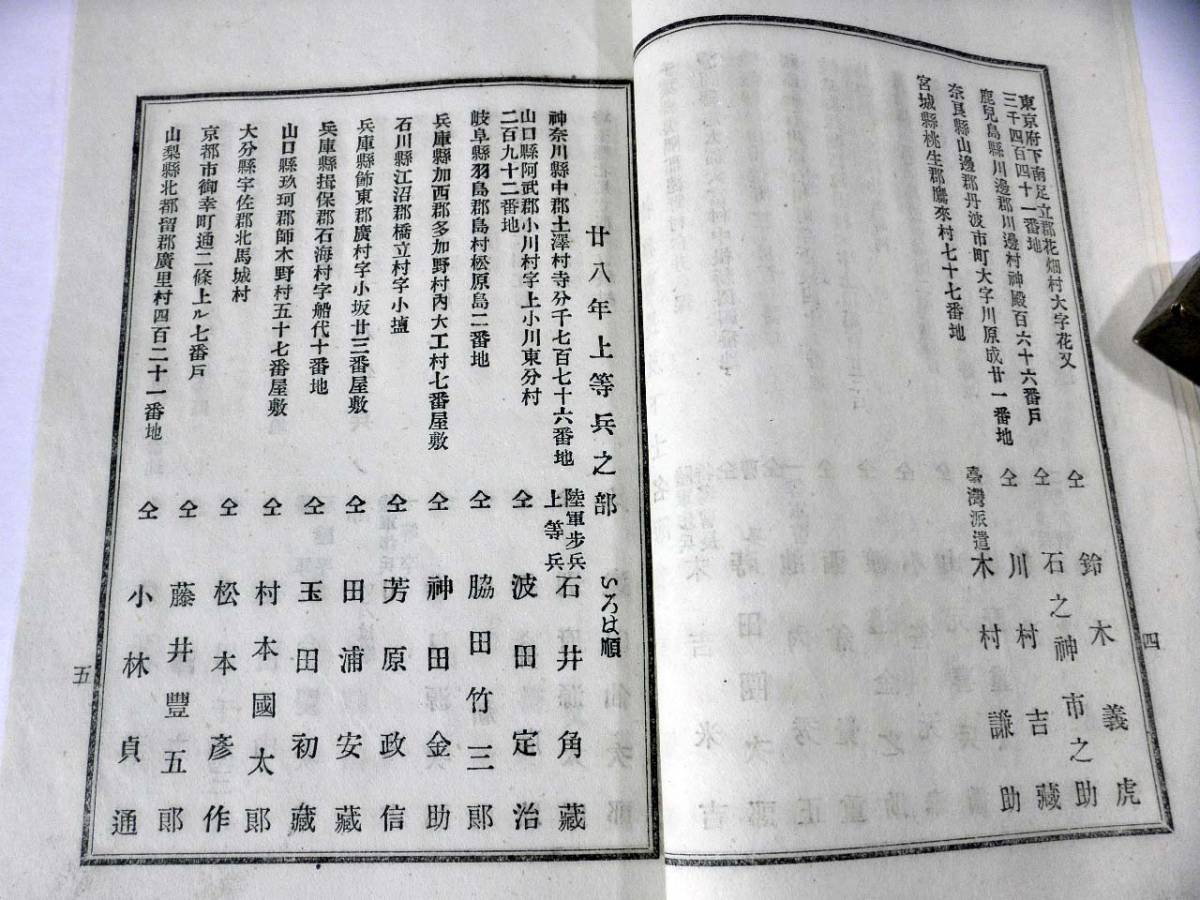 四
東京府下南足立郡花畑村大字花又
三千四百四十一番地 仝 鈴木義虎
鹿兒島縣川邊郡川邊村神殿百六十六番戸 仝 石之神市之助
奈良縣山邊郡丹波市町大字川原成廿一番地 仝 川村吉藏
宮城縣桃生郡鷹來村七十七番地 臺灣派遣 木村謙助
廿八年上等兵之部 いろは順
神奈川縣中郡土澤村寺分千七百七十六番地 陸軍步兵上等兵 石井角藏
山口縣阿武郡小川村字上小川東分村
二百九十二番地 仝 波田定治
岐阜縣羽島郡島村松原島二番地 仝 脇田竹三郎
兵庫縣加西郡多加野村內大工村七番屋敷 仝 神田金助
石川縣江沼郡橋立村字小塩 仝 芳原政信
兵庫縣飾東郡廣村字小坂廿三番屋敷 仝 田浦安藏
兵庫縣揖保郡石海村字船代十番地 仝 玉田初藏
山口縣玖珂郡師木野村五十七番屋敷 仝 村本國太郎
大分縣宇佐郡北馬城村 仝 松本彥作
京都市御幸町通二條上ル七番戸 仝 藤井豐五郎
山梨縣北都留郡廣里村四百二十一番地 仝 小林貞通
五